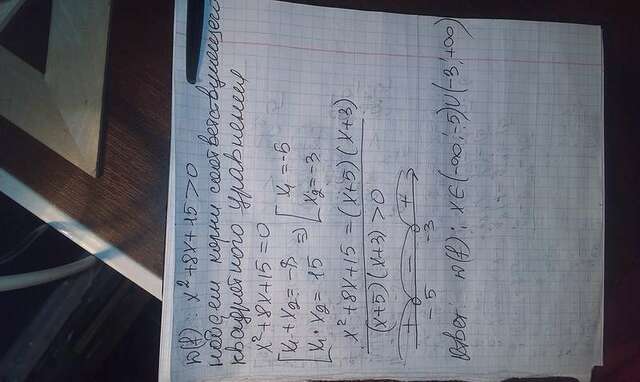 D(f): x²+8x+15>0
найдем корни соответствующего
квадратного уравнения
x²+8x+15=0
[x₁+x₂=-8
[x₁·x₂=15 ⇒ [x₁=-5
[x₂=-3
x²+8x+15=(x+5)(x+3)
(x+5)(x+3)>0
+ - +
-5 -3
Ответ: D(f): x∈(-∞;-5)∪(-3;+∞)